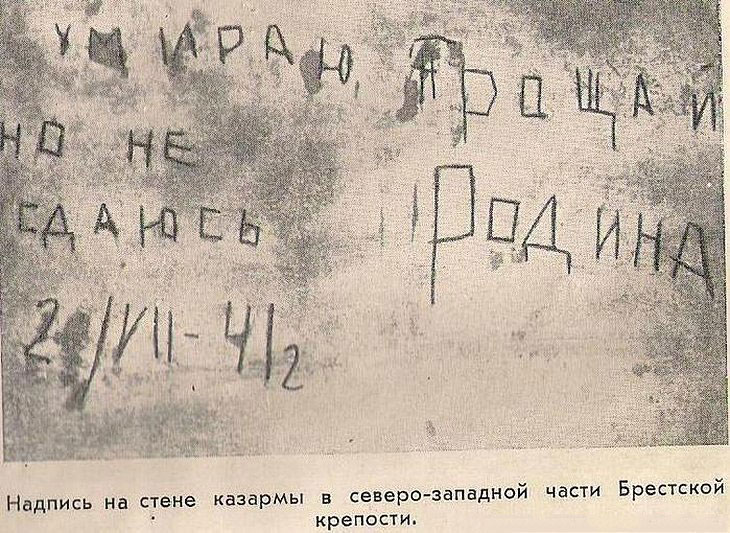 УМИРАЮ,
НО НЕ
СДАЮСЬ
ПРОЩАЙ
РОДИНА
/VII-41г
Надпись на стене казармы в северо-западной части Брестской
крепости.